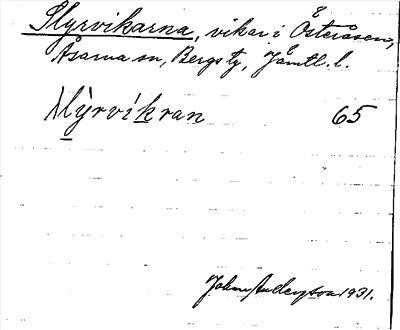 Myrvikarna, vikar i Österåsen,
Åsarna sn, Bergs tg, Jämtl. l.
Myrvikran 65
1931.